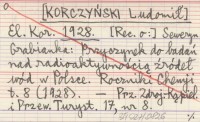 [KORCZYŃSKI Ludomił]
El. Kor. 1928. [Rec. o:] Seweryn
Grabianka: Przyczynek do badań
nad radioaktywnością źródeł
wód w Polsce. Roczniki Chemji
t. 8 (1928). — Prz. Zdroj.-Kąpiel.
i Przew. Turyst. 17, nr 8.